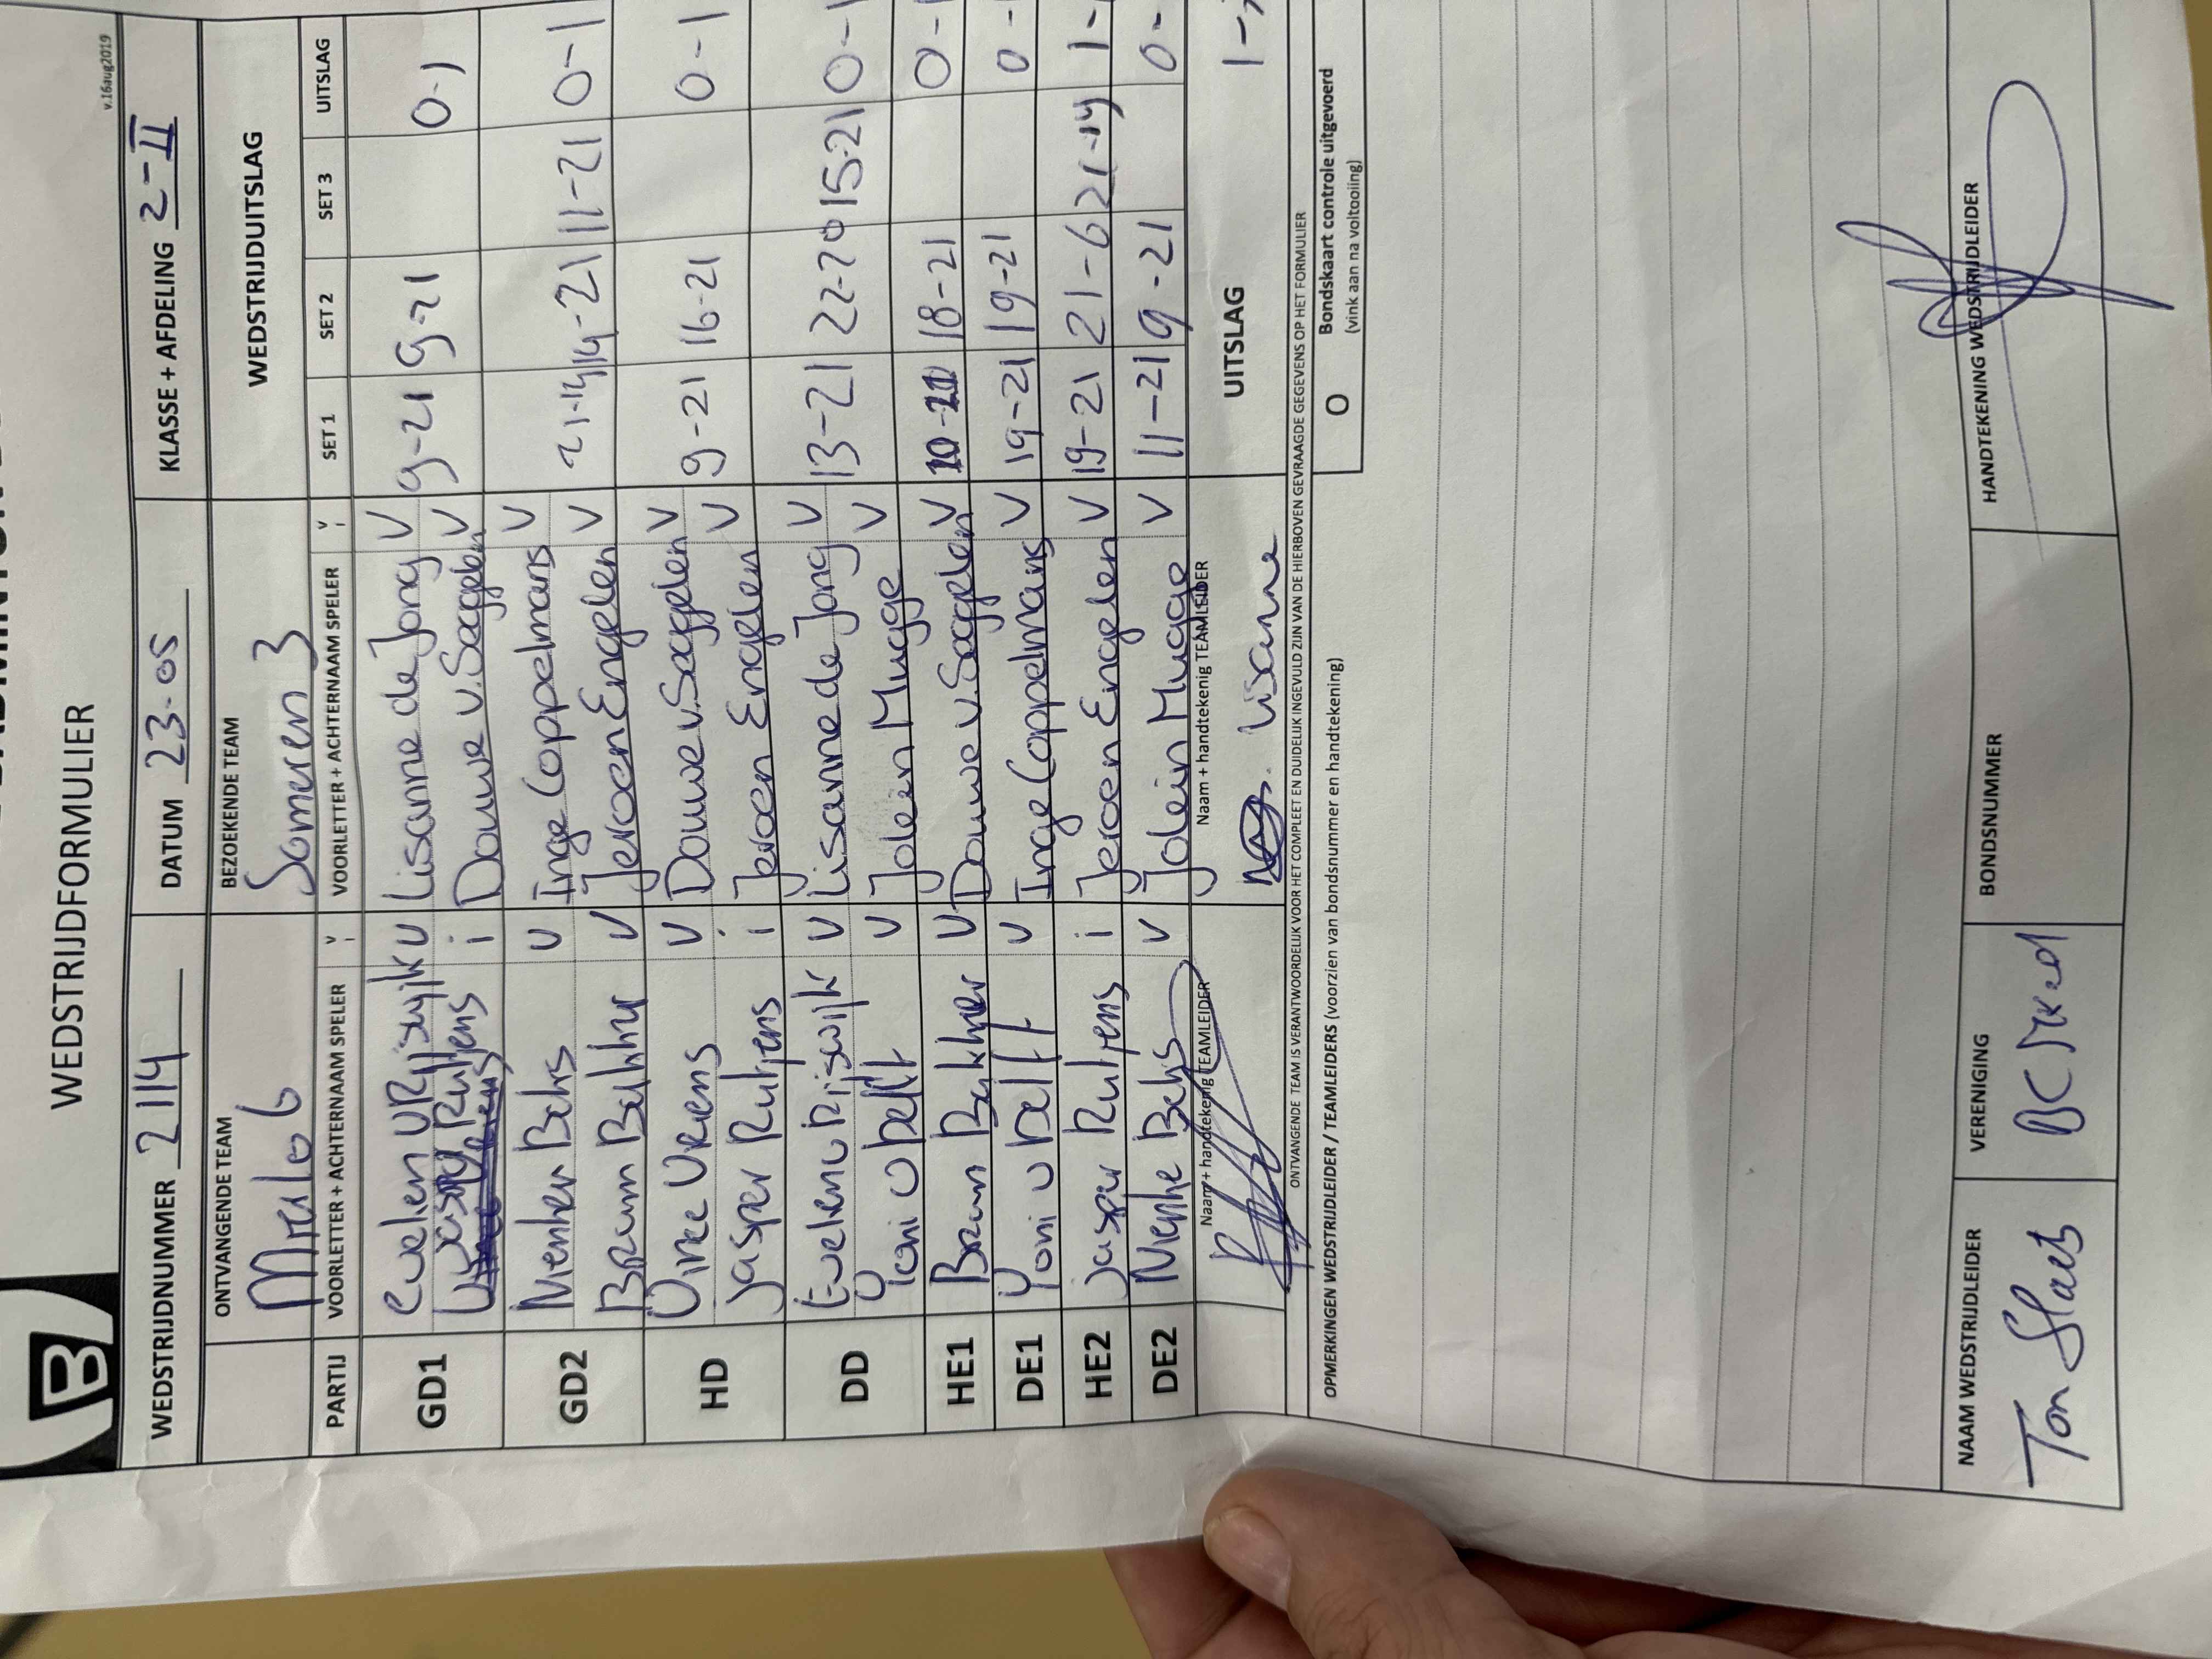 WEDSTRIJDFORMULIER
v.16aug2019
B
WEDSTRIJDNUMMER 2114 DATUM 23-05 KLASSE + AFDELING 2-II
ONTVANGENDE TEAM BEZOEKENDE TEAM WEDSTRIJDUITSLAG
Mierlo 6 Someren 3
PARTIJ VOORLETTER + ACHTERNAAM SPELER V i VOORLETTER + ACHTERNAAM SPELER V i SET 1 SET 2 SET 3 UITSLAG
GD1 Evelien v Rijswijk V Lisanne de Jong V 9-21 9-21 0-1
Jasper Rutjens i Douwe v. Seggelen V
GD2 Nienke Beks V Inge Coppelmans V 21-14 14-21 11-21 0-1
Bram V Jeroen Engelen V
HD Vriens V Douwe v. Seggelen V 9-21 16-21 0-1
Jasper Rutjens i Jeroen Engelen V
DD Evelien v Rijswijk V Lisanne de Jong V 13-21 22-20 15-21 0-1
Yoni v Delft V Jolein Mugge V
HE1 Bram V Douwe v. Seggelen V 10-21 18-21 0-
DE1 Yoni v Delft V Inge Coppelmans V 19-21 19-21 0-
HE2 Jasper Rutjens i Jeroen Engelen V 19-21 21-6 21-14 1-
DE2 Nienke Beks V Jolein Mugge V 11-21 9-21 0-
Naam + handtekenig TEAMLEIDER Naam + handtekenig TEAMLEIDER UITSLAG 1-7
Lisanne
ONTVANGENDE TEAM IS VERANTWOORDELIJK VOOR HET COMPLEET EN DUIDELIJK INGEVULD ZIJN VAN DE HIERBOVEN GEVRAAGDE GEGEVENS OP HET FORMULIER
OPMERKINGEN WEDSTRIJDLEIDER / TEAMLEIDERS (voorzien van bondsnummer en handtekening)
O Bondskaart controle uitgevoerd
(vink aan na voltooiing)
NAAM WEDSTRIJDLEIDER VERENIGING BONDSNUMMER HANDTEKENING WEDSTRIJDLEIDER
Ton Slaets BC